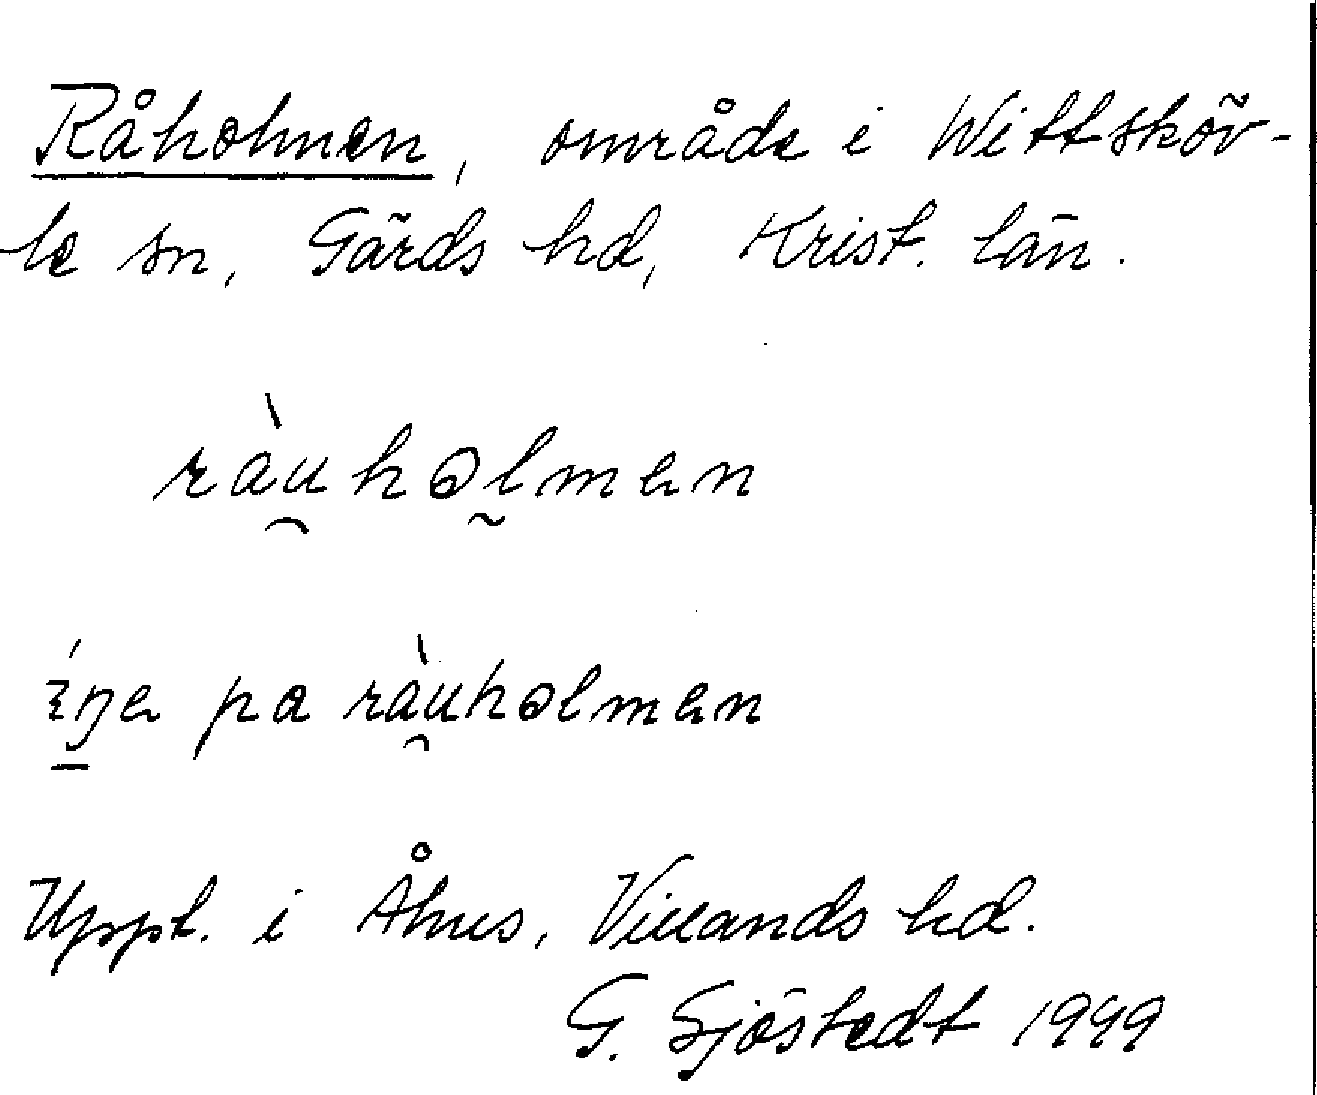 Råholmen, område i Wittsköv-
le sn, Gärds hd, Krist. län.
ràu̯hɷl̰mɐn
íŋɐ pa ràu̯hɷlmɐn
Uppt. i Åhus, Villands hd.
G. Sjöstedt 1949